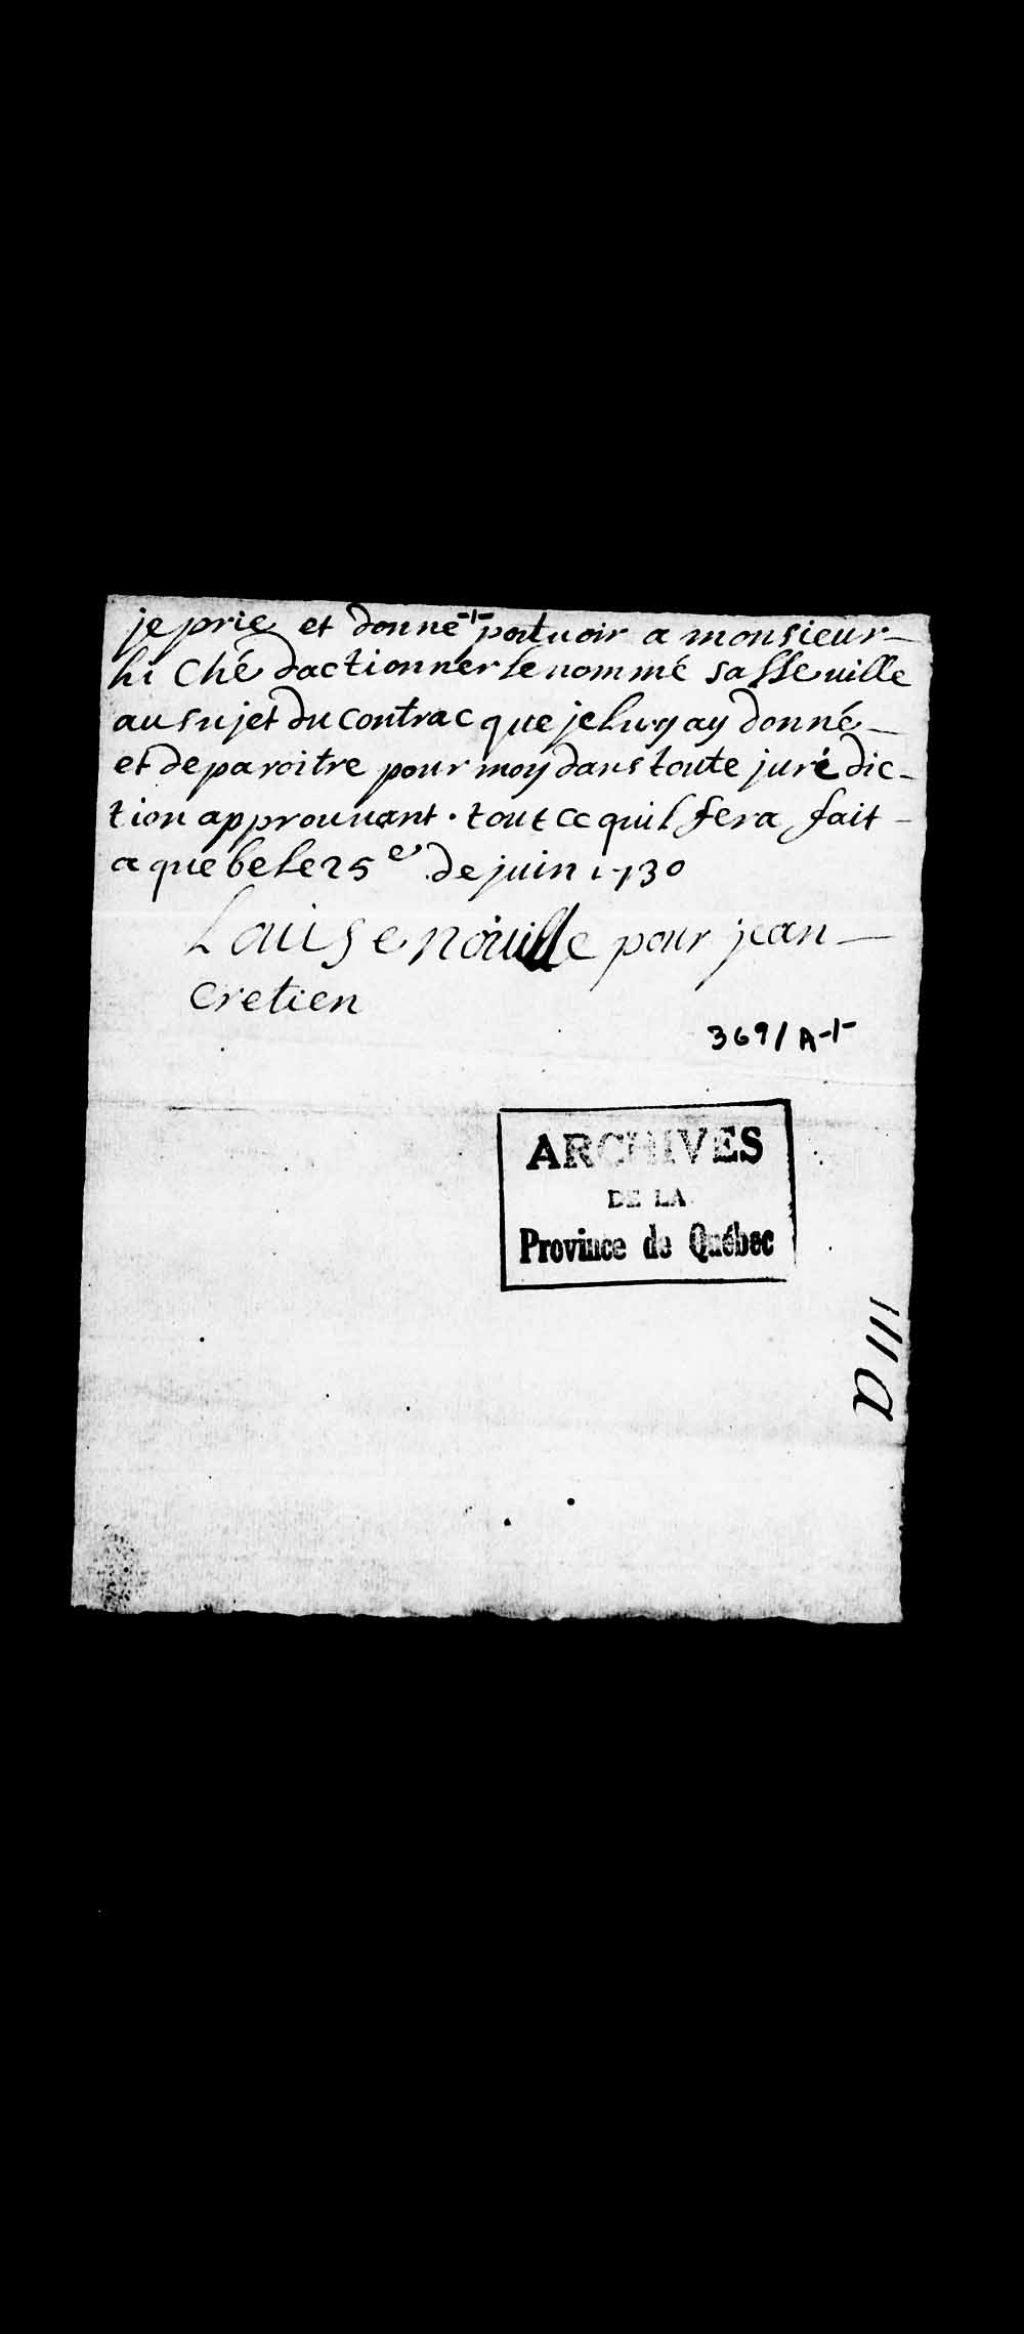 je prie et donne pouuoir a monsieur
hi Ché dactionner le nommé salleuille
au sujet du contrac que je luy ay donné
et de paroitre pour moy dans toute jurédic-
tion approuuant . tout ce quil fera fait
a quebe le 25e de juin 1730
Louise nouille pour jean
cretien
369/A-1-
ARCHIVES
DE LA
Province de Québec
111a